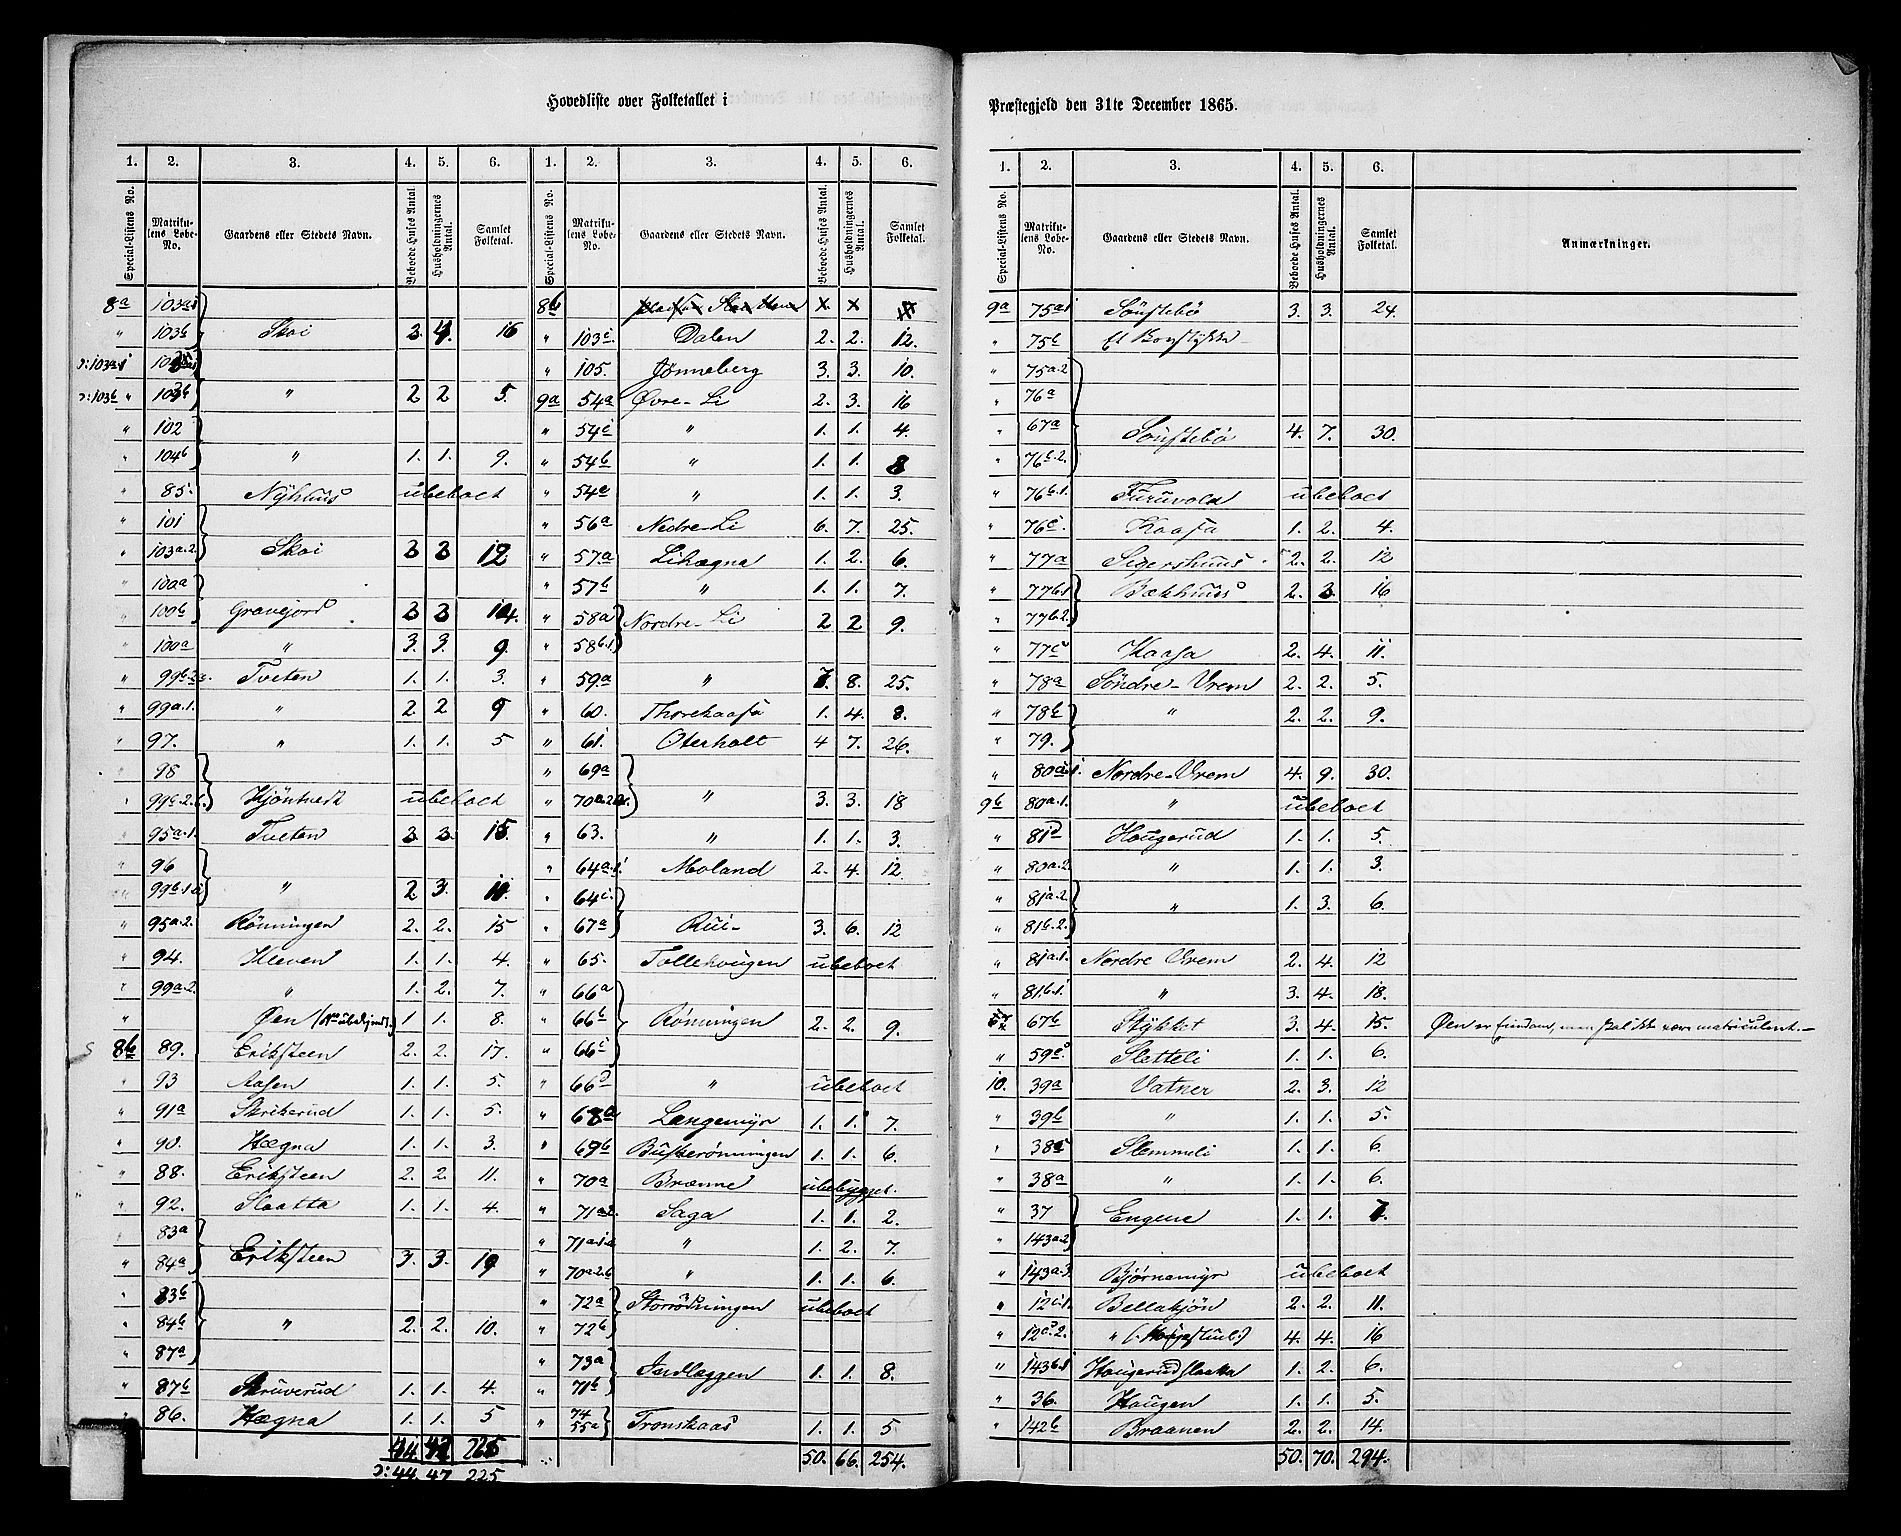 Hovedliste over Folketallet i
Præstegjeld den 31te December 1865.
1. 2. 3. 4. 5. 6.
Special-Listens No. Matrikulens Løbe-No. Gaardens eller Stedets Navn. Beboede Huses Antal. Husholdningernes Antal. Samlet Folketal.
8a 103a1
" 103b Skoi 3 4. 16
ↄ: 103a1
ↄ: 103b " " 2 2 5.
" 102
" 104b " 1. 1. 9.
" 85. Nyhuus ubeboet
" 101
" 103a.2. Skoi 3 3 12
" 100a
" 100b Gravejord 3 3 14.
" 100a " 3. 3. 9.
" 99b.2 Tveten 1. 1. 3.
" 99a.1. " 2 2 9
" 97. " 1. 1. 5
" 98
" 99b.2. ubeboet
" 95a.1. Tveten 3 3. 15
" 96
" 99b.1 " 2 3. 11.
" 95a.2. Rönningen 2. 2. 15
" 94. Kleven 1. 1. 4.
" 99a.2. " 1. 2. 7.
" Øen (No ubekjendt.) 1 1. 8.
8b 89. Eriksteen 2. 2. 17.
" 93 Aasen 1. 1. 5.
" 91a Skrikerud 1. 1. 5.
" 90. Hægna 1. 1. 3.
" 88. Eriksteen 2. 2. 11.
" 92. Slaatta 1. 1. 4.
" 83a
" 84a Eriksteen 3. 3. 19
" 83b
" 84b " 2. 2. 10.
" 87a
" 87b Skruverud 1. 1. 4.
" 86. Hægna 1. 1. 5
ↄ: 44. 47 225
1. 2. 3. 4. 5. 6.
Special-Listens No. Matrikulens Løbe-No. Gaardens eller Stedets Navn. Beboede Huses Antal. Husholdningernes Antal. Samlet Folketal.
8b x x
" 103c Dalen 2. 2. 12.
" 105. Jönneberg 3. 3. 10.
9a 54a Øvre-Li 2. 3. 16
" 54c " 1. 1. 4.
" 54b " 1. 1. 8
" 54d " 1. 1. 3.
" 56a Nedre-Li 6. 7. 25.
" 57a Lihægna 1. 2. 6.
" 57b " 1. 1. 7.
" 58a Nordre-Li 2 2 9.
" 58b.1
" 59a " 7. 8. 25.
" 60. Thorekaasa 1. 4. 8.
" 61. Oterholt 4 7. 26.
" 69a
" 70a.2 " 3. 3. 18
" 63. " 1. 1. 3.
" 64a.1 Moland 2. 4. 12.
" 64c
" 67a Rui- 3. 6. 12
" 65. Tollehougen ubeboet
" 66a
" 66b Rönningen 2. 2. 9.
" 66c
" 66d " ubeboet
" 68a Langemyr 1. 1. 7.
" 69b Buskerønningen 1. 1. 6.
" 70a Brænne ubebygget.
" 71a2. Saga 1. 1. 2.
" 71a.1 " 1. 2. 7.
" 70a.2.b " 1. 1. 6.
" 72a Storrödningen ubeboet
" 72b
" 73a Indlæggen 1. 1. 8.
" 71b
" 74 55a Tronskaas 1. 1. 5
50. 66. 254.
1. 2. 3. 4. 5. 6.
Special-Listens No. Matrikulens Løbe-No. Gaardens eller Stedets Navn. Beboede Huses Antal. Husholdningernes Antal. Samlet Folketal. Anmærkninger.
9a 75a1 Sönstebö 3. 3. 24.
" 75b Et
" 75a.2
" 76a
" 67a Sönstebö 4. 7. 30.
" 76b.2.
" 76b.1. Furuvold ubeboet
" 76c Kaasa 1. 2. 4.
" 77a Sigershuus 2. 2. 12
" 77b.1 Bækhuus 2. 3 16
" 77b.2.
" 77c Kaasa 2. 4. 11.
" 78a Söndre-Vrem 2. 2. 5.
" 78b " 2. 2. 9.
" 79.
" 80a.1. Nordre-Vrem 4. 9. 30.
9b 80a.1. " ubeboet
" 81d Hougerud 1. 1. 5.
" 80a.2. " 1. 1. 3.
" 81a.2. " 1. 3. 6.
" 81b.2.
" 81a.1. Nordre Vrem 2. 4. 12
" 81b.1 " 3. 4. 18.
67b Stykket 3. 4. 15. Øen er fradom, men skal ikke være matriculeret.
" 59c Sletteli 1. 1. 6.
10. 39a Vatner 2. 3. 12
" 39b " 1. 1. 5.
" 38b Slemmeli 1. 1. 6.
" 38a " 1. 1. 6.
" 37 Engene 1. 1. 7.
" 143a.2
" 143a.3. Björnamyr ubeboet
" 12c.1. Bellakjön 2. 2. 11.
" 12c.2. " 4. 4. 16
" 143b.1 Hougerudslaaka 1. 2. 6.
" 36. Hougen 1. 1. 5.
" 142b Braanen 2. 2. 14.
50. 70. 294.